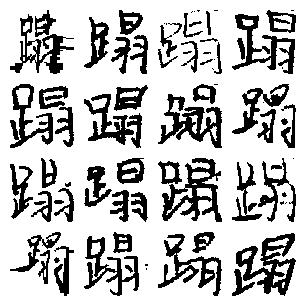 蹋蹋蹋蹋
蹋蹋蹋蹋
蹋蹋蹋蹋
蹋蹋蹋蹋